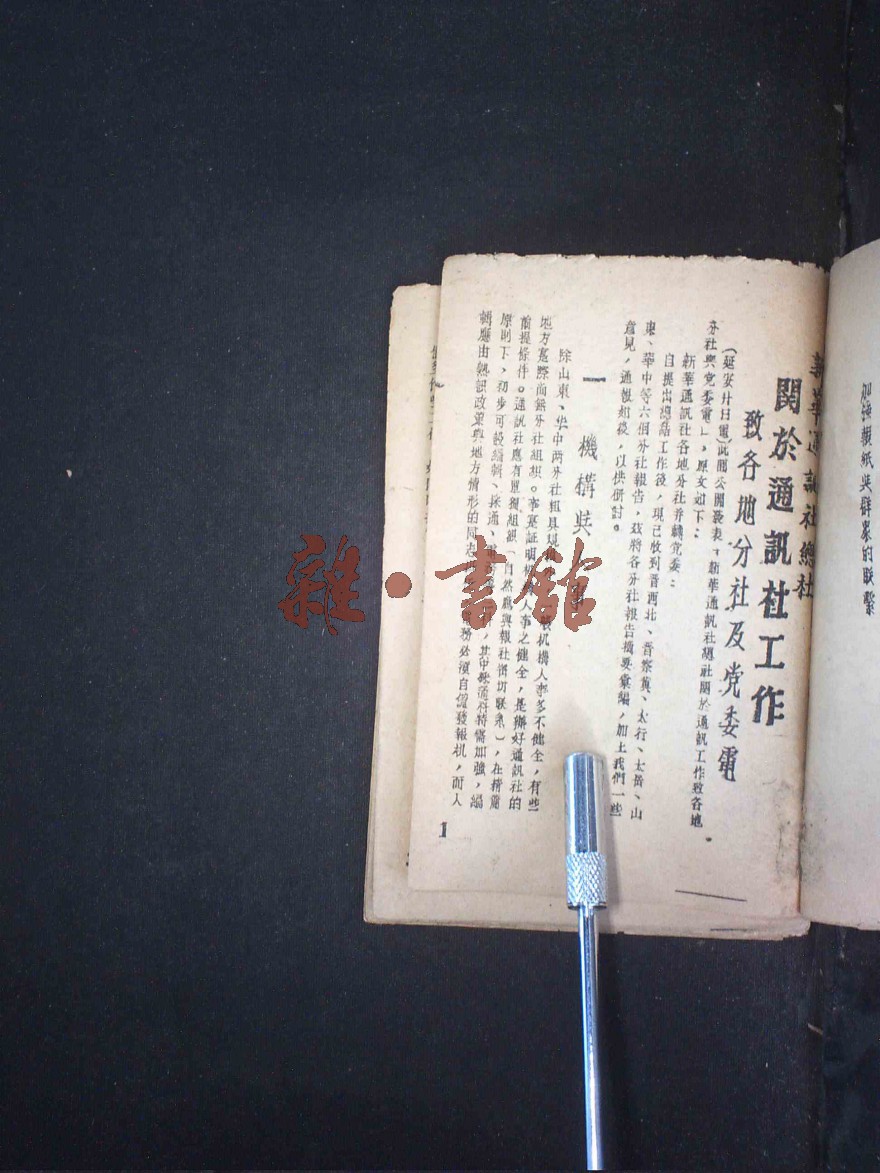 加强報紙與群衆的联繫
新華通訊社總社
関於通訊社工作
致各地分社及党委電
(延安廿日電)此間公開發表「新華通訊社總社關於通訊工作致各地
分社與党委電」,原文如下:
新華通訊社各地分社并轉党委:
自提出總結工作後,現已收到晋西北、晋察冀、太行、太岳、山
東、華中等六個分社報告,兹將各分社報告摘要彙編,加上我們一些
意見,通報如後,以供研討。
一 機構與人事
除山東、华中两分社粗具規模 机構人事多不健全,有些
地方實際尚無分社組织。事實証明 人事之健全,是辦好通訊社的
前提條件。通訊社應有單獨組織(自然應與報社密切联系),在精簡
原則下,初步可設編輯、採通、電 其中採通科特需加強,編
輯應由熟諳政策與地方情形的同志 務必須自備發報机,而人
1
雜·書館